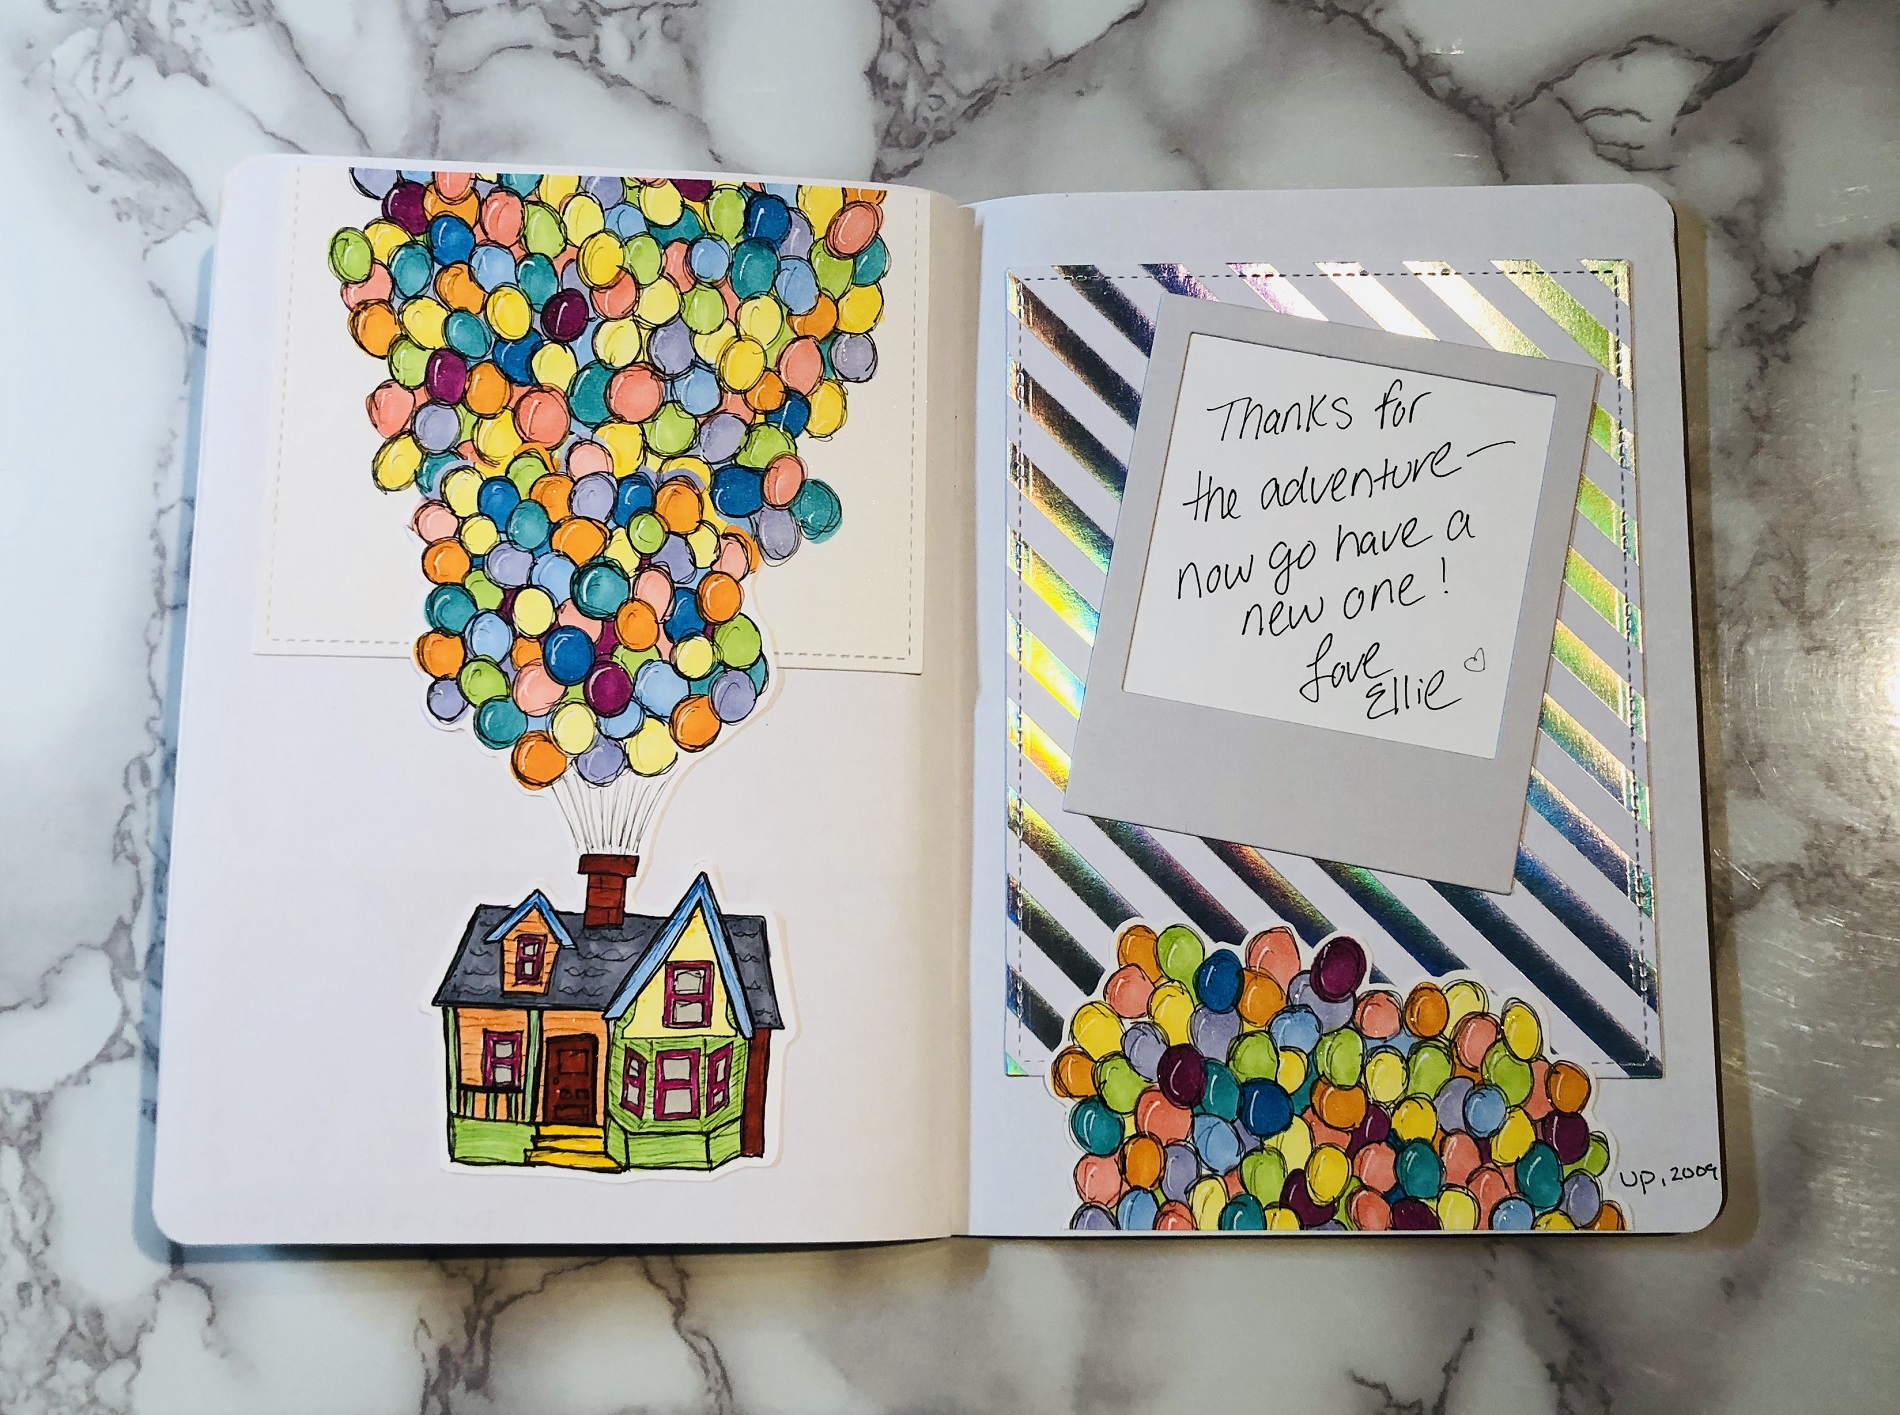 Thanks for
the adventure—
now go have a
new one!
Love
Ellie ♡
UP, 2009